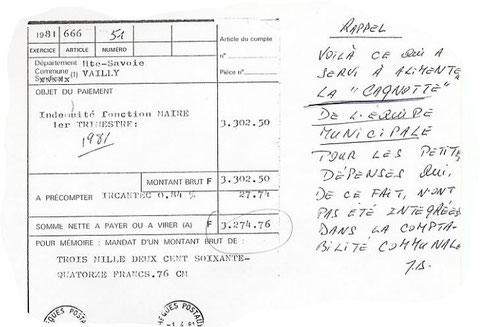 1981 666 51
EXERCICE ARTICLE NUMÉRO
Article du compte
n°
Département Hte-Savoie
Commune (1) VAILLY
Syndicat
Pièce n°
OBJET DU PAIEMENT
Indemnité fonction MAIRE
1er TRIMESTRE: 3.302.50
1981
MONTANT BRUT F 3.302.50
A PRÉCOMPTER IRCANTEC 0.84 % 27.74
SOMME NETTE A PAYER OU A VIRER (A) F 3.274.76
POUR MÉMOIRE : MANDAT D'UN MONTANT BRUT DE :
TROIS MILLE DEUX CENT SOIXANTE-
QUATORZE FRANCS.76 CM
CHEQUES POSTAUX
RAPPEL
VOILÀ CE QUI A
SERVI À ALIMENTER
LA "CAGNOTTE"
DE L'ÉQUIPE
MUNICIPALE
POUR LES PETITES
DÉPENSES QUI,
DE CE FAIT, N'ONT
PAS ETÉ INTEGRÉES
DANS LA COMPTA-
BILITÉ COMMUNALE
J.B.